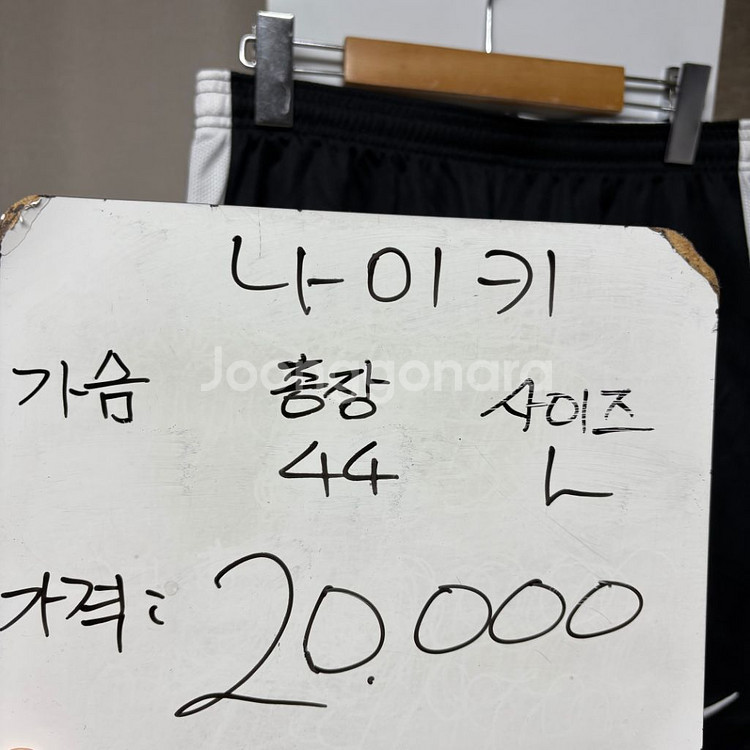 나이키
가슴 총장 사이즈
44 L
가격: 20.000
Joonggonara